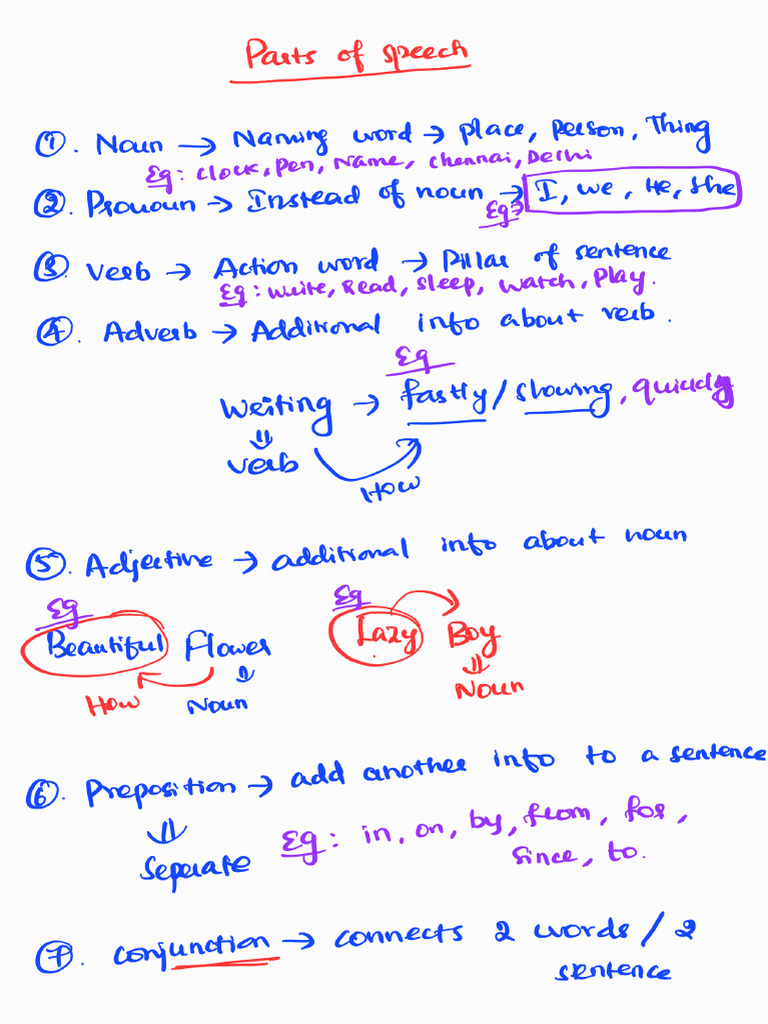 Parts of speech
①. Noun → Naming word → place, Person, Thing
Eg: Clock, Pen, Name, Chennai, Delhi
②. Pronoun → Instead of noun → I, we, He, She
Eg →
③. Verb → Action word → Pillar of sentence
Eg: Write, Read, Sleep, Watch, Play.
④. Adverb → Additional info about verb.
Eg
Writing → fastly / slowing, quickly
⇓
Verb
How
⑤. Adjective → additional info about noun
Eg Eg
Beautiful Flower Lazy Boy
How Noun Noun
⑥. Preposition → add another info to a sentence
⇓ Eg: in, on, by, from, for,
Seperate since, to.
⑦. Conjunction → connects 2 words / 2
sentence